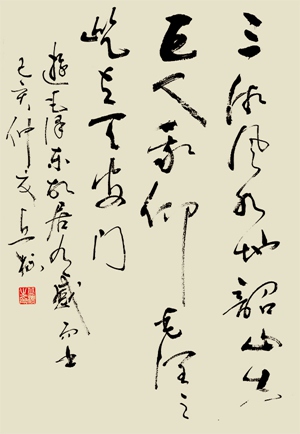 三湘风水地韶山出
巨人我仰毛泽
屹立天安门
遊毛泽东故居有感而书
己亥仲夏